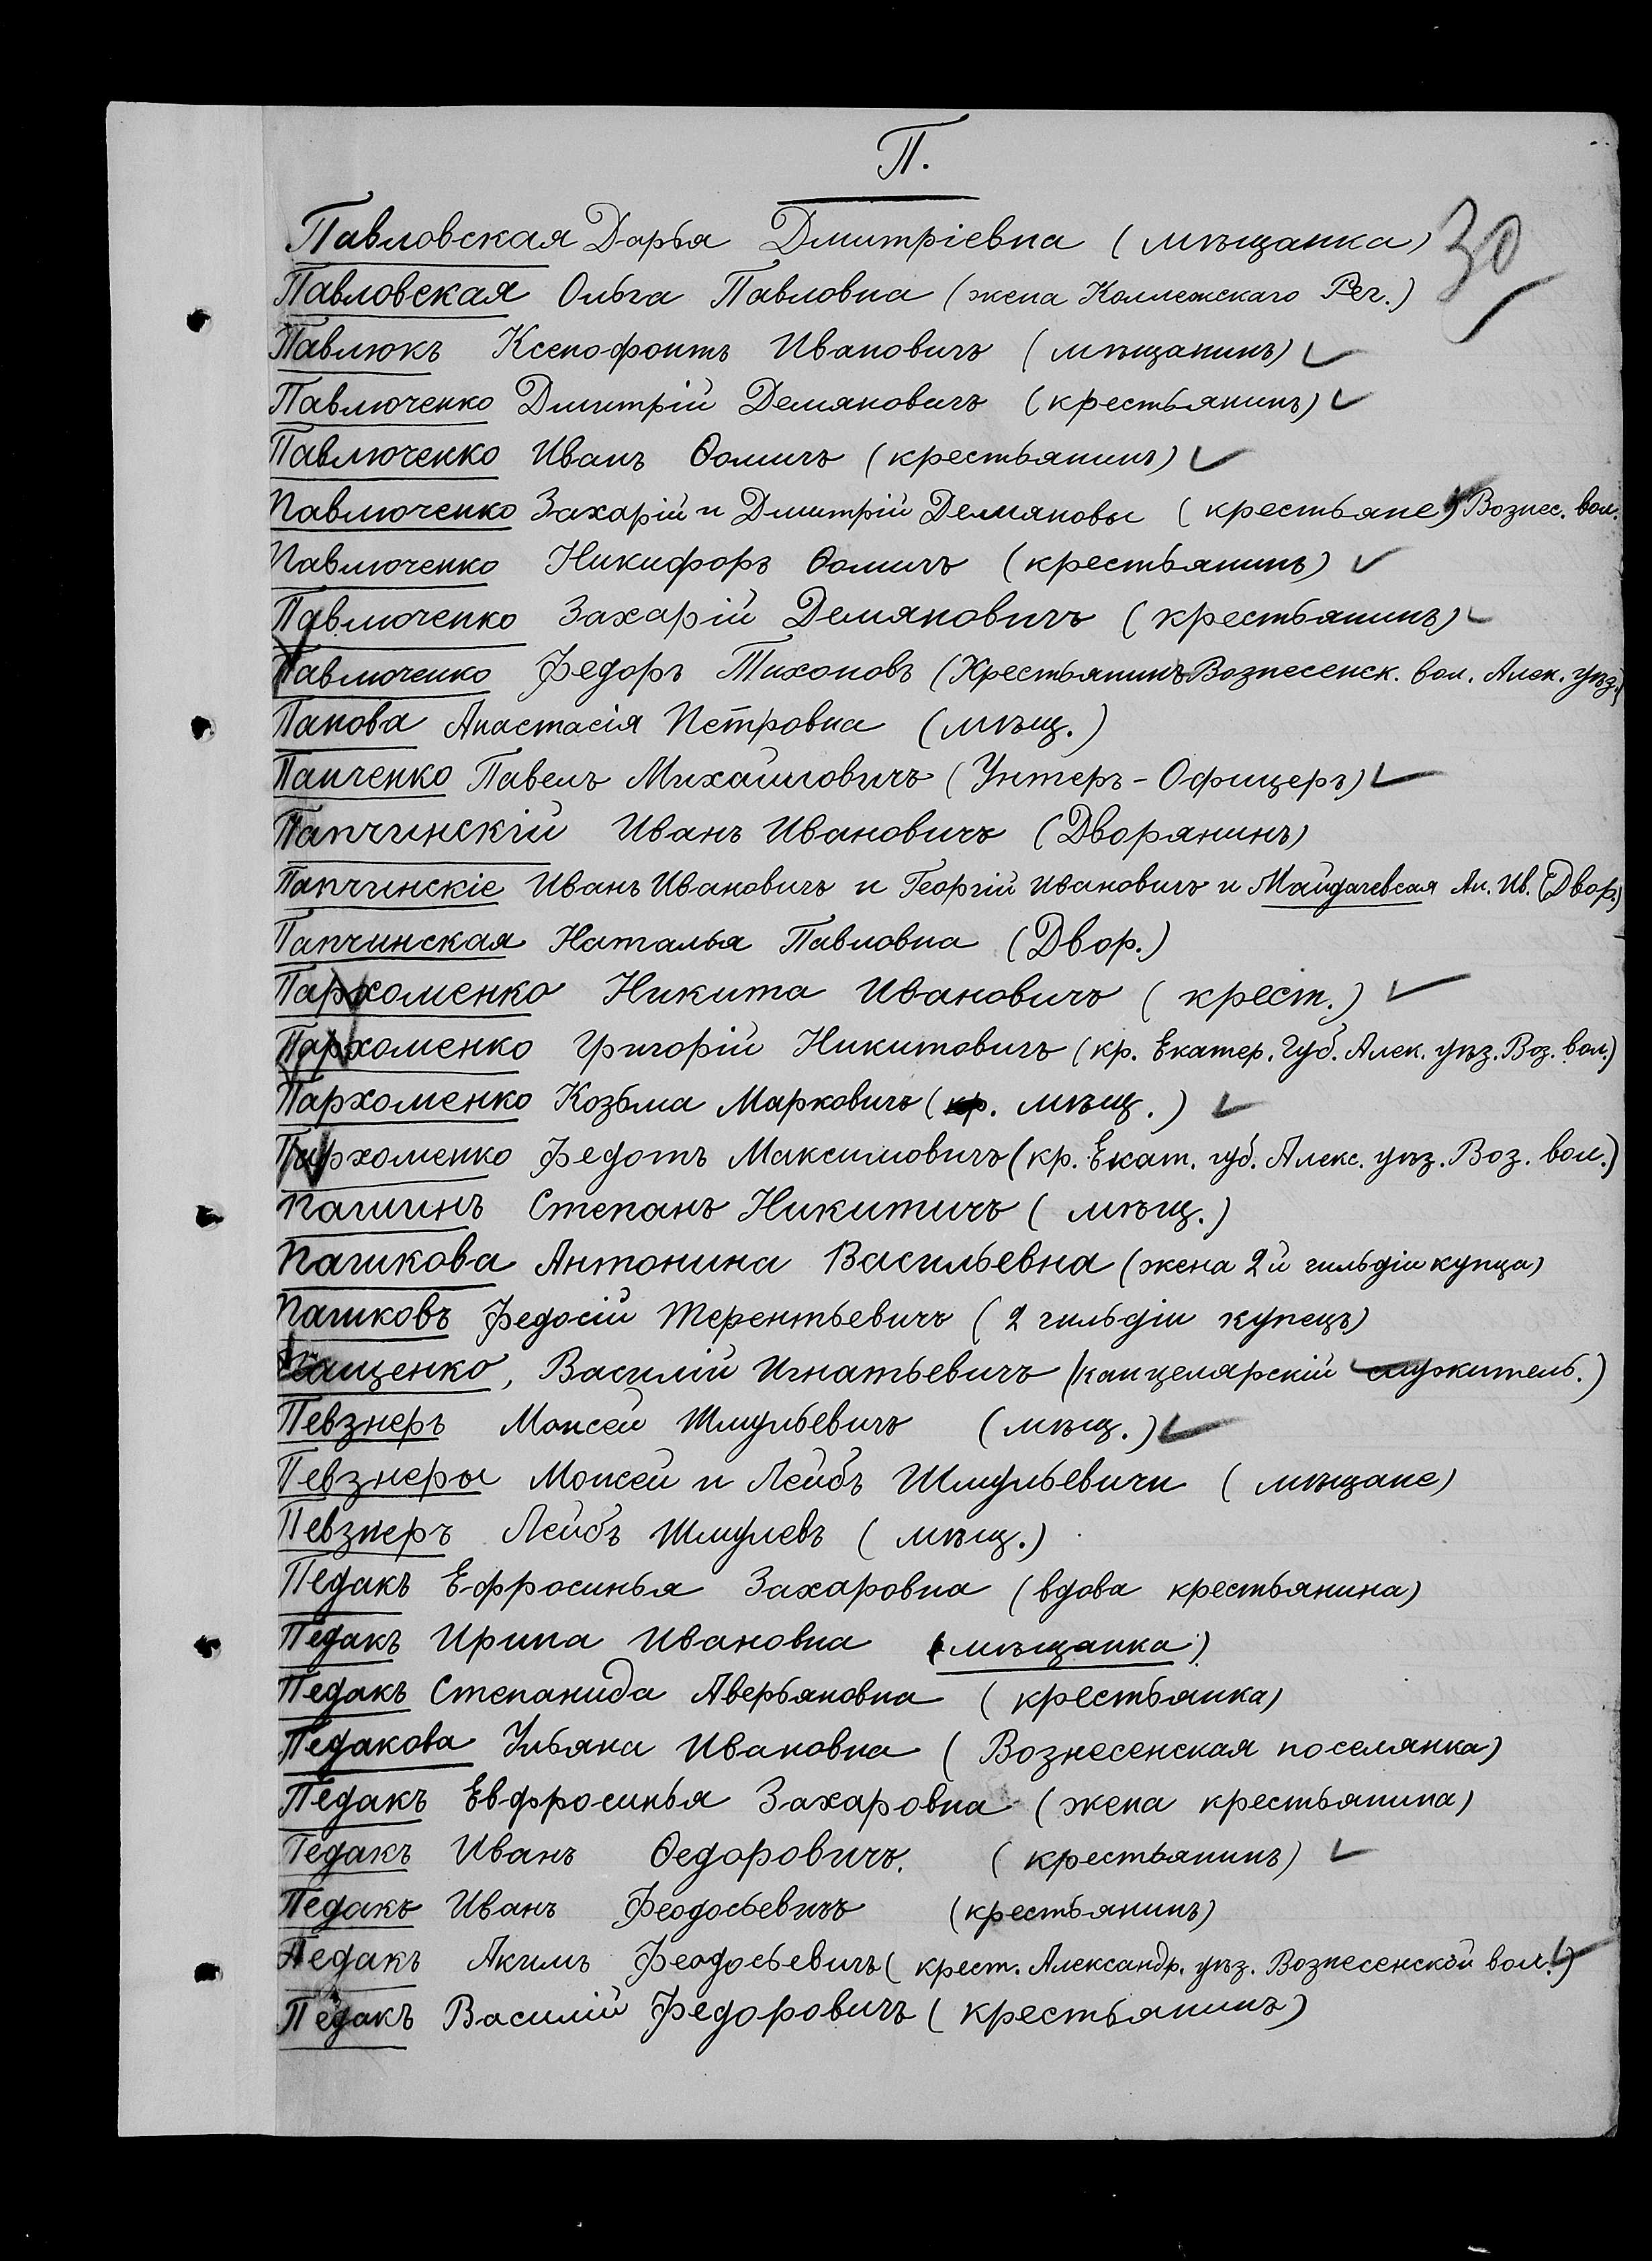 П.
30
Павловская Дарья Дмитріевна (мѣщанка)
Павловская Ольга Павловна (жена Коллежскаго Рег.)
Павлюкъ Ксенофонтъ Ивановичъ (мѣщанинъ)
Павлюченко Дмитрій Демяновичъ (крестьянинъ)
Павлюченко Иванъ Ѳомичъ (крестьянинъ)
Павлюченко Захарій и Дмитрій Демяновы (крестьяне) Вознес. вол.
Павлюченко Никифоръ Ѳомичъ (крестьянинъ)
Павлюченко Захарій Демяновичъ (крестьянинъ)
Павлюченко Федоръ Тихоновъ (Крестьянинъ Вознесенск. вол. Алек. уѣз.)
Панова Анастасія Петровна (мѣщ.)
Панченко Павелъ Михайловичъ (Унтеръ-Офицеръ)
Папчинскій Иванъ Ивановичъ (Дворянинъ)
Папчинскіе Иванъ Ивановичъ и Георгій Ивановичъ и Майдачевсая Ан. Ив. (Двор.)
Папчинская Наталья Павловна (Двор.)
Пархоменко Никита Ивановичъ (крест.)
Пархоменко Григорій Никитовичъ (кр. Екатер. Губ. Алек. уѣз. Воз. вол.)
Пархоменко Козьма Марковичъ (кр. мѣщ.)
Пархоменко Федотъ Максимовичъ (кр. Екат. губ. Алекс. уѣз. Воз. вол.)
Пашинъ Степанъ Никитичъ (мѣщ.)
Пашкова Антонина Васильевна (жена 2й гильдіи купца)
Пашковъ Федосій Терентьевичъ (2 гильдіи купецъ)
Пащенко, Василій Игнатьевичъ (канцелярскій служитель.)
Певзнеръ Моисей Шмульевичъ (мѣщ.)
Певзнеры Моисей и Лейбъ Шмульевичи (мѣщане)
Певзнеръ Лейбъ Шмулевъ (мѣщ.)
Педакъ Ефросинья Захаровна (вдова крестьянина)
Педакъ Ирина Ивановна (мѣщанка)
Педакъ Степанида Аверьяновна (крестьянка)
Педакова Ульяна Ивановна (Вознесенская поселянка)
Педакъ Евфросинья Захаровна (жена крестьянина)
Педакъ Иванъ Ѳедоровичъ. (крестьянинъ)
Педакъ Иванъ Феодосьевичъ (крестьянинъ)
Педакъ Акимъ Феодосьевичъ (крест. Александр. уѣз. Вознесенской вол.)
Педакъ Василій Федоровичъ (крестьянинъ)